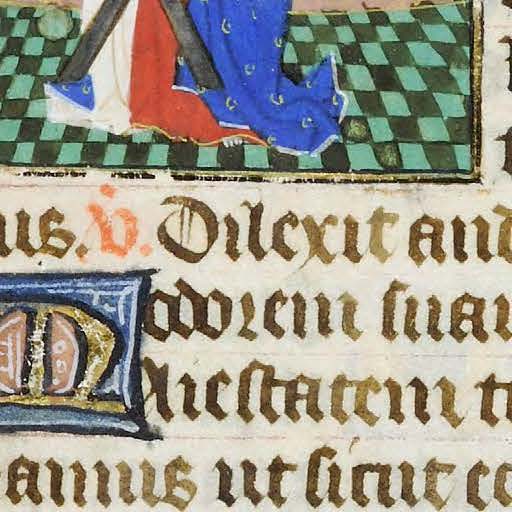 us. v̇. Dilexit and
odorem suau
Maiestatem t
amus ut sicut co